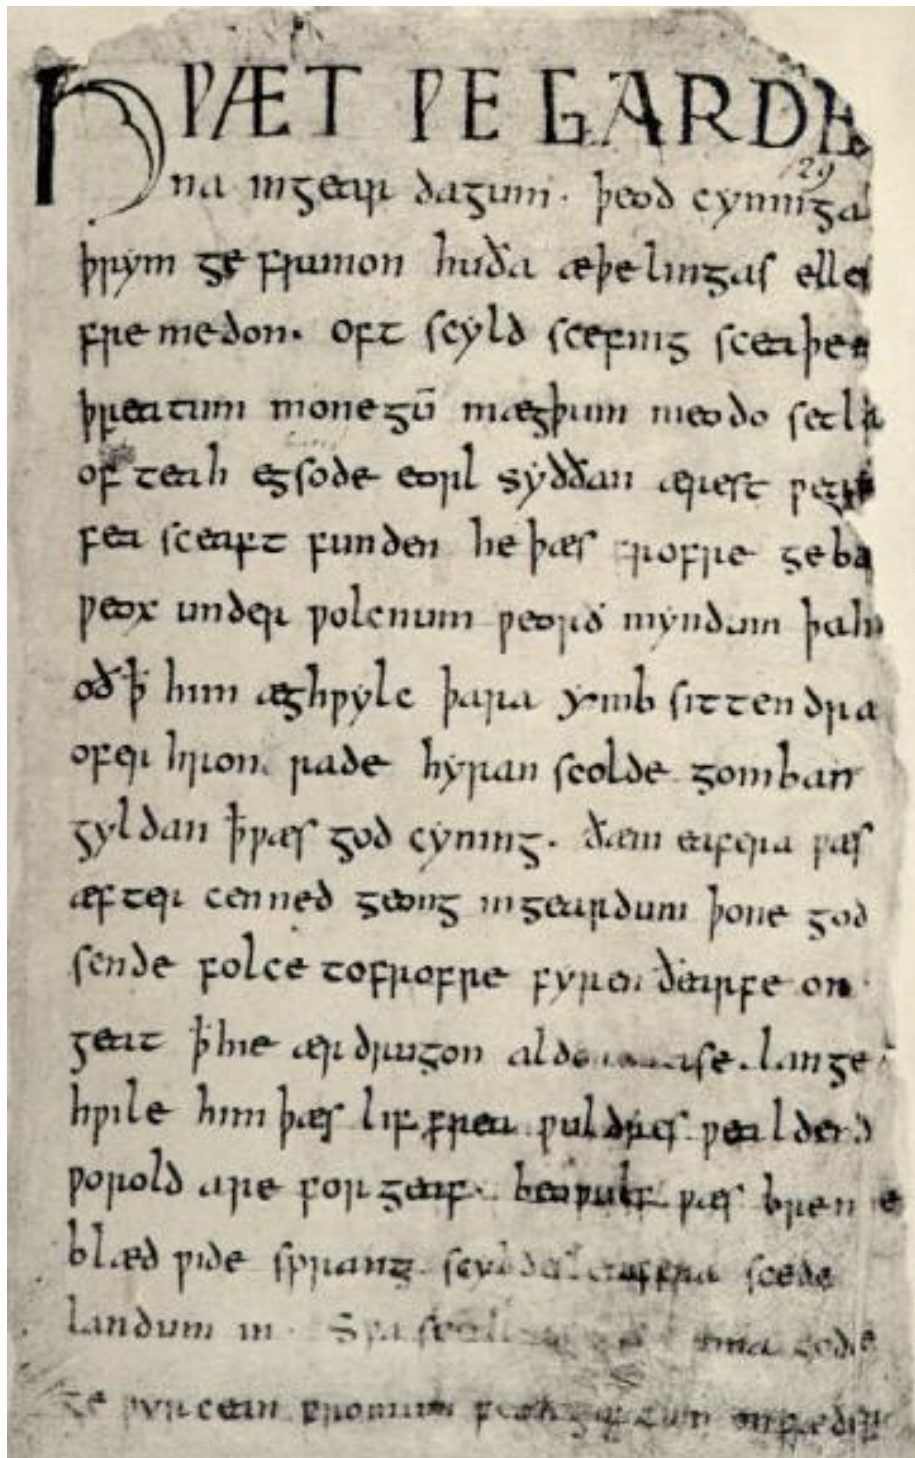 HǷÆT ǷE GARDE
129
na ingear dagum. þeod cyninga
þrym ge frunon huða æþelingas elle
fre medon. oft scyld scefing sceaþe
þreatum monegū mægþum meodo setla
of teah egsode eorl syððan ærest ƿear
fea sceaft funden he þæs frofre geba
ƿeox under ƿolcnum ƿeorð myndum þah
oð ꝥ him æghƿylc þara ymb sittendra
ofer hron rade hyran scolde gomban
gyldan ꝥ ƿæs god cyning. ðæm eafera ƿæs
æfter cenned geong ingeardum þone god
sende folce tofrofre fyren ðearfe on
geat ꝥ hie ær drugon aldor ase. lange
hƿile him þæs lif frea ƿuldres ƿealdend
ƿorold are for geaf. beoƿulf ƿæs breme
blæd ƿide sprang scyldes eafera scede
landum in. Sƿa sceal gode
ge ƿyrcean fromum feoh giftum